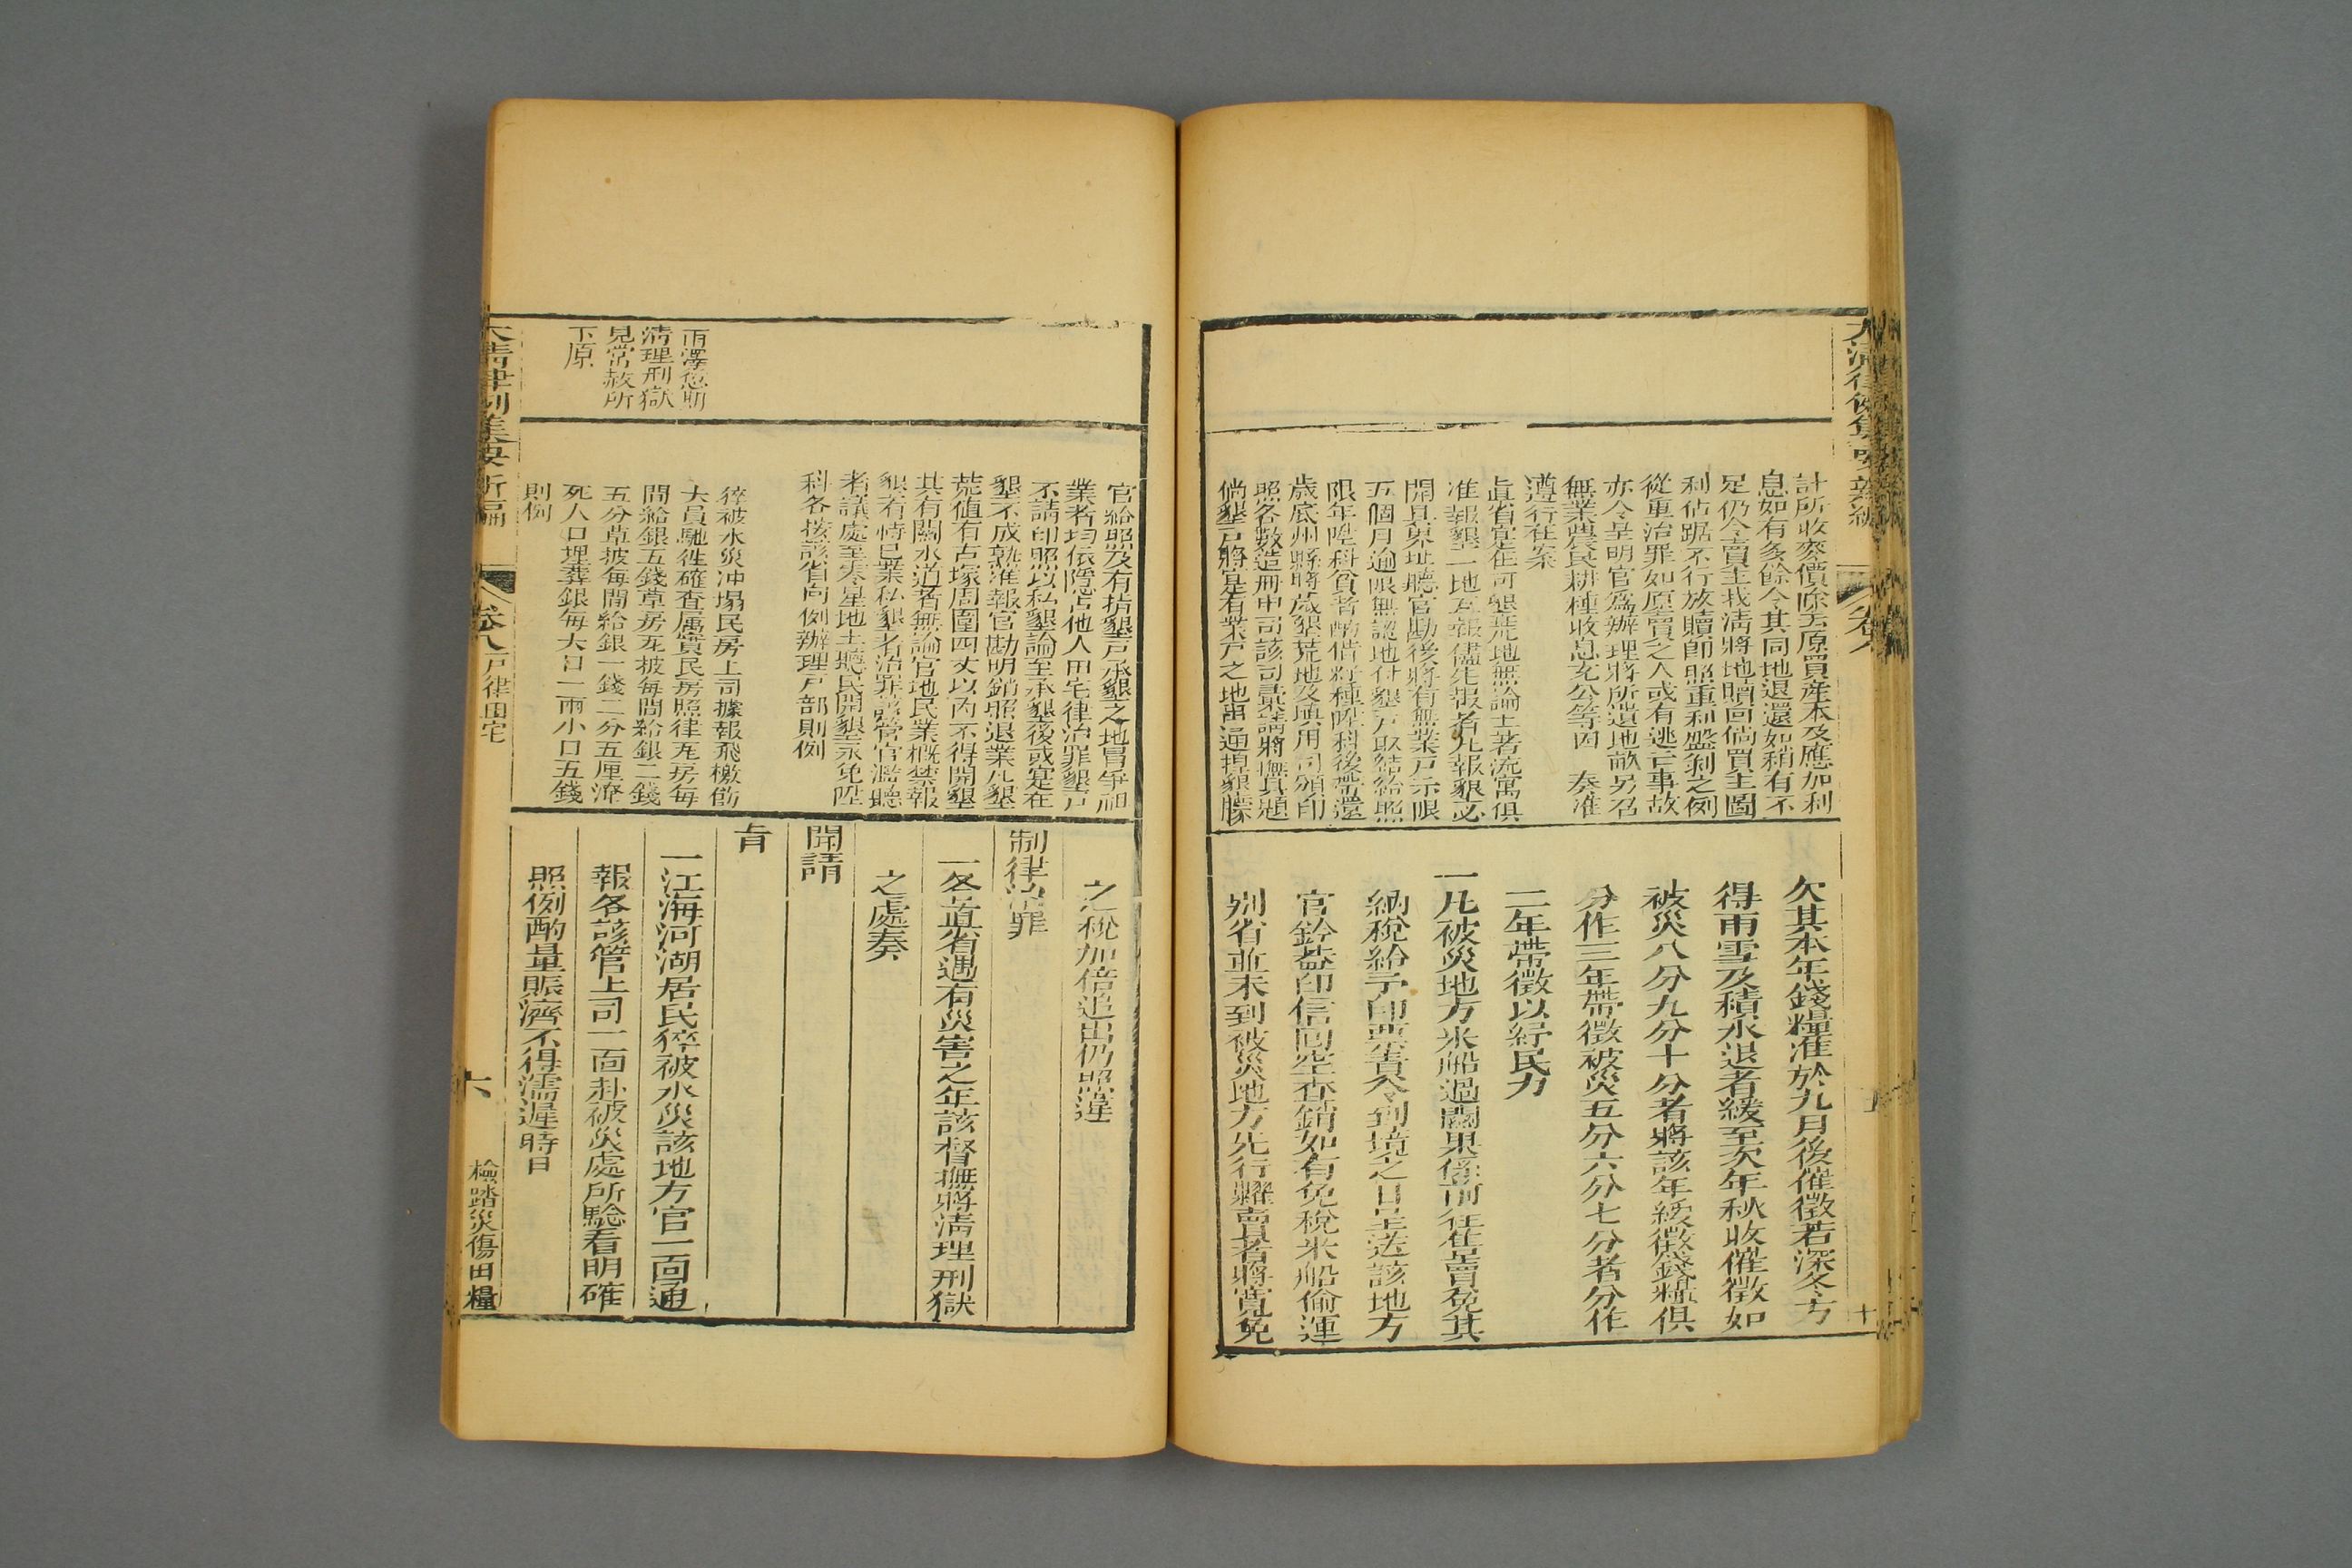 計所收麥價除去原買産本及應加利
息如有多餘令其同地退還如稍有不
足仍令賣主找清將地贖回倘買主圖
利佔踞不行放贖卽照重利盤剝之例
從重治罪如原賣之人或有逃亡事故
亦令呈明官爲辦理將所遺地畝另召
無業農民耕種收息充公等因 奏准
遵行在案
直省寔在可墾荒地無論土著流寓俱
准報墾一地互報儘先報者凡報墾必
開具界址聽官勘後將有無業戸示限
五個月逾限無認地付墾戸取結給照
限年陞科貧者酌借籽種陞科後帶還
歲底州縣將歲墾荒地及塡用司頒印
照各數造冊申司該司彙請將撫具題
倘墾戸將寔有業戸之地串通揑墾朦
欠其本年錢糧准於九月後催徵若深冬方
得雨雪及積水退者緩至次年秋收催徵如
被災八分九分十分者將該年緩徵錢糧俱
分作三年帶徵被災五分六分七分者分作
二年帶徵以紓民力
一凡被災地方米船過關果係前往售賣免其
納稅給予印票責令到境之日呈送該地方
官鈐蓋印信回空查銷如有免稅米船偷運
別省並未到被災地方先行糶賣者將寬免
官給照及有指墾戸承墾之地冒爭祖
業者均依隱占他人田宅律治罪墾戸
不請印照以私墾論至承墾後或寔在
墾不成熟准報官勘明銷照退業凡墾
荒値有古塚周圍四丈以內不得開墾
其有關水道者無論官地民業槪禁報
墾若恃已業私墾者治罪該管官濫聽
者議處至奏星地土聽民開墾永免陞
科各按該省向例辦理戸部則例
雨澤愆期
清理刑獄
見常赦所
下原
猝被水災冲塌民房上司據報飛檄飭
大員馳徃確查属實民房照律瓦房每
間給銀五錢草房瓦披每間給銀二錢
五分草披每間給銀一錢二分五厘渰
死人口埋葬銀每大口一兩小口五錢
則例
之稅加倍追出仍照違
制律治罪
一各直省遇有災害之年該督撫將清理刑獄
之處奏
聞請
旨
一江海河湖居民猝被水災該地方官一面通
報各該管上司一面赴被災處所騐看明確
照例酌量賑濟不得濡遲時日
大清律例集要新編 卷八戸律田宅 六 檢踏災傷田糧